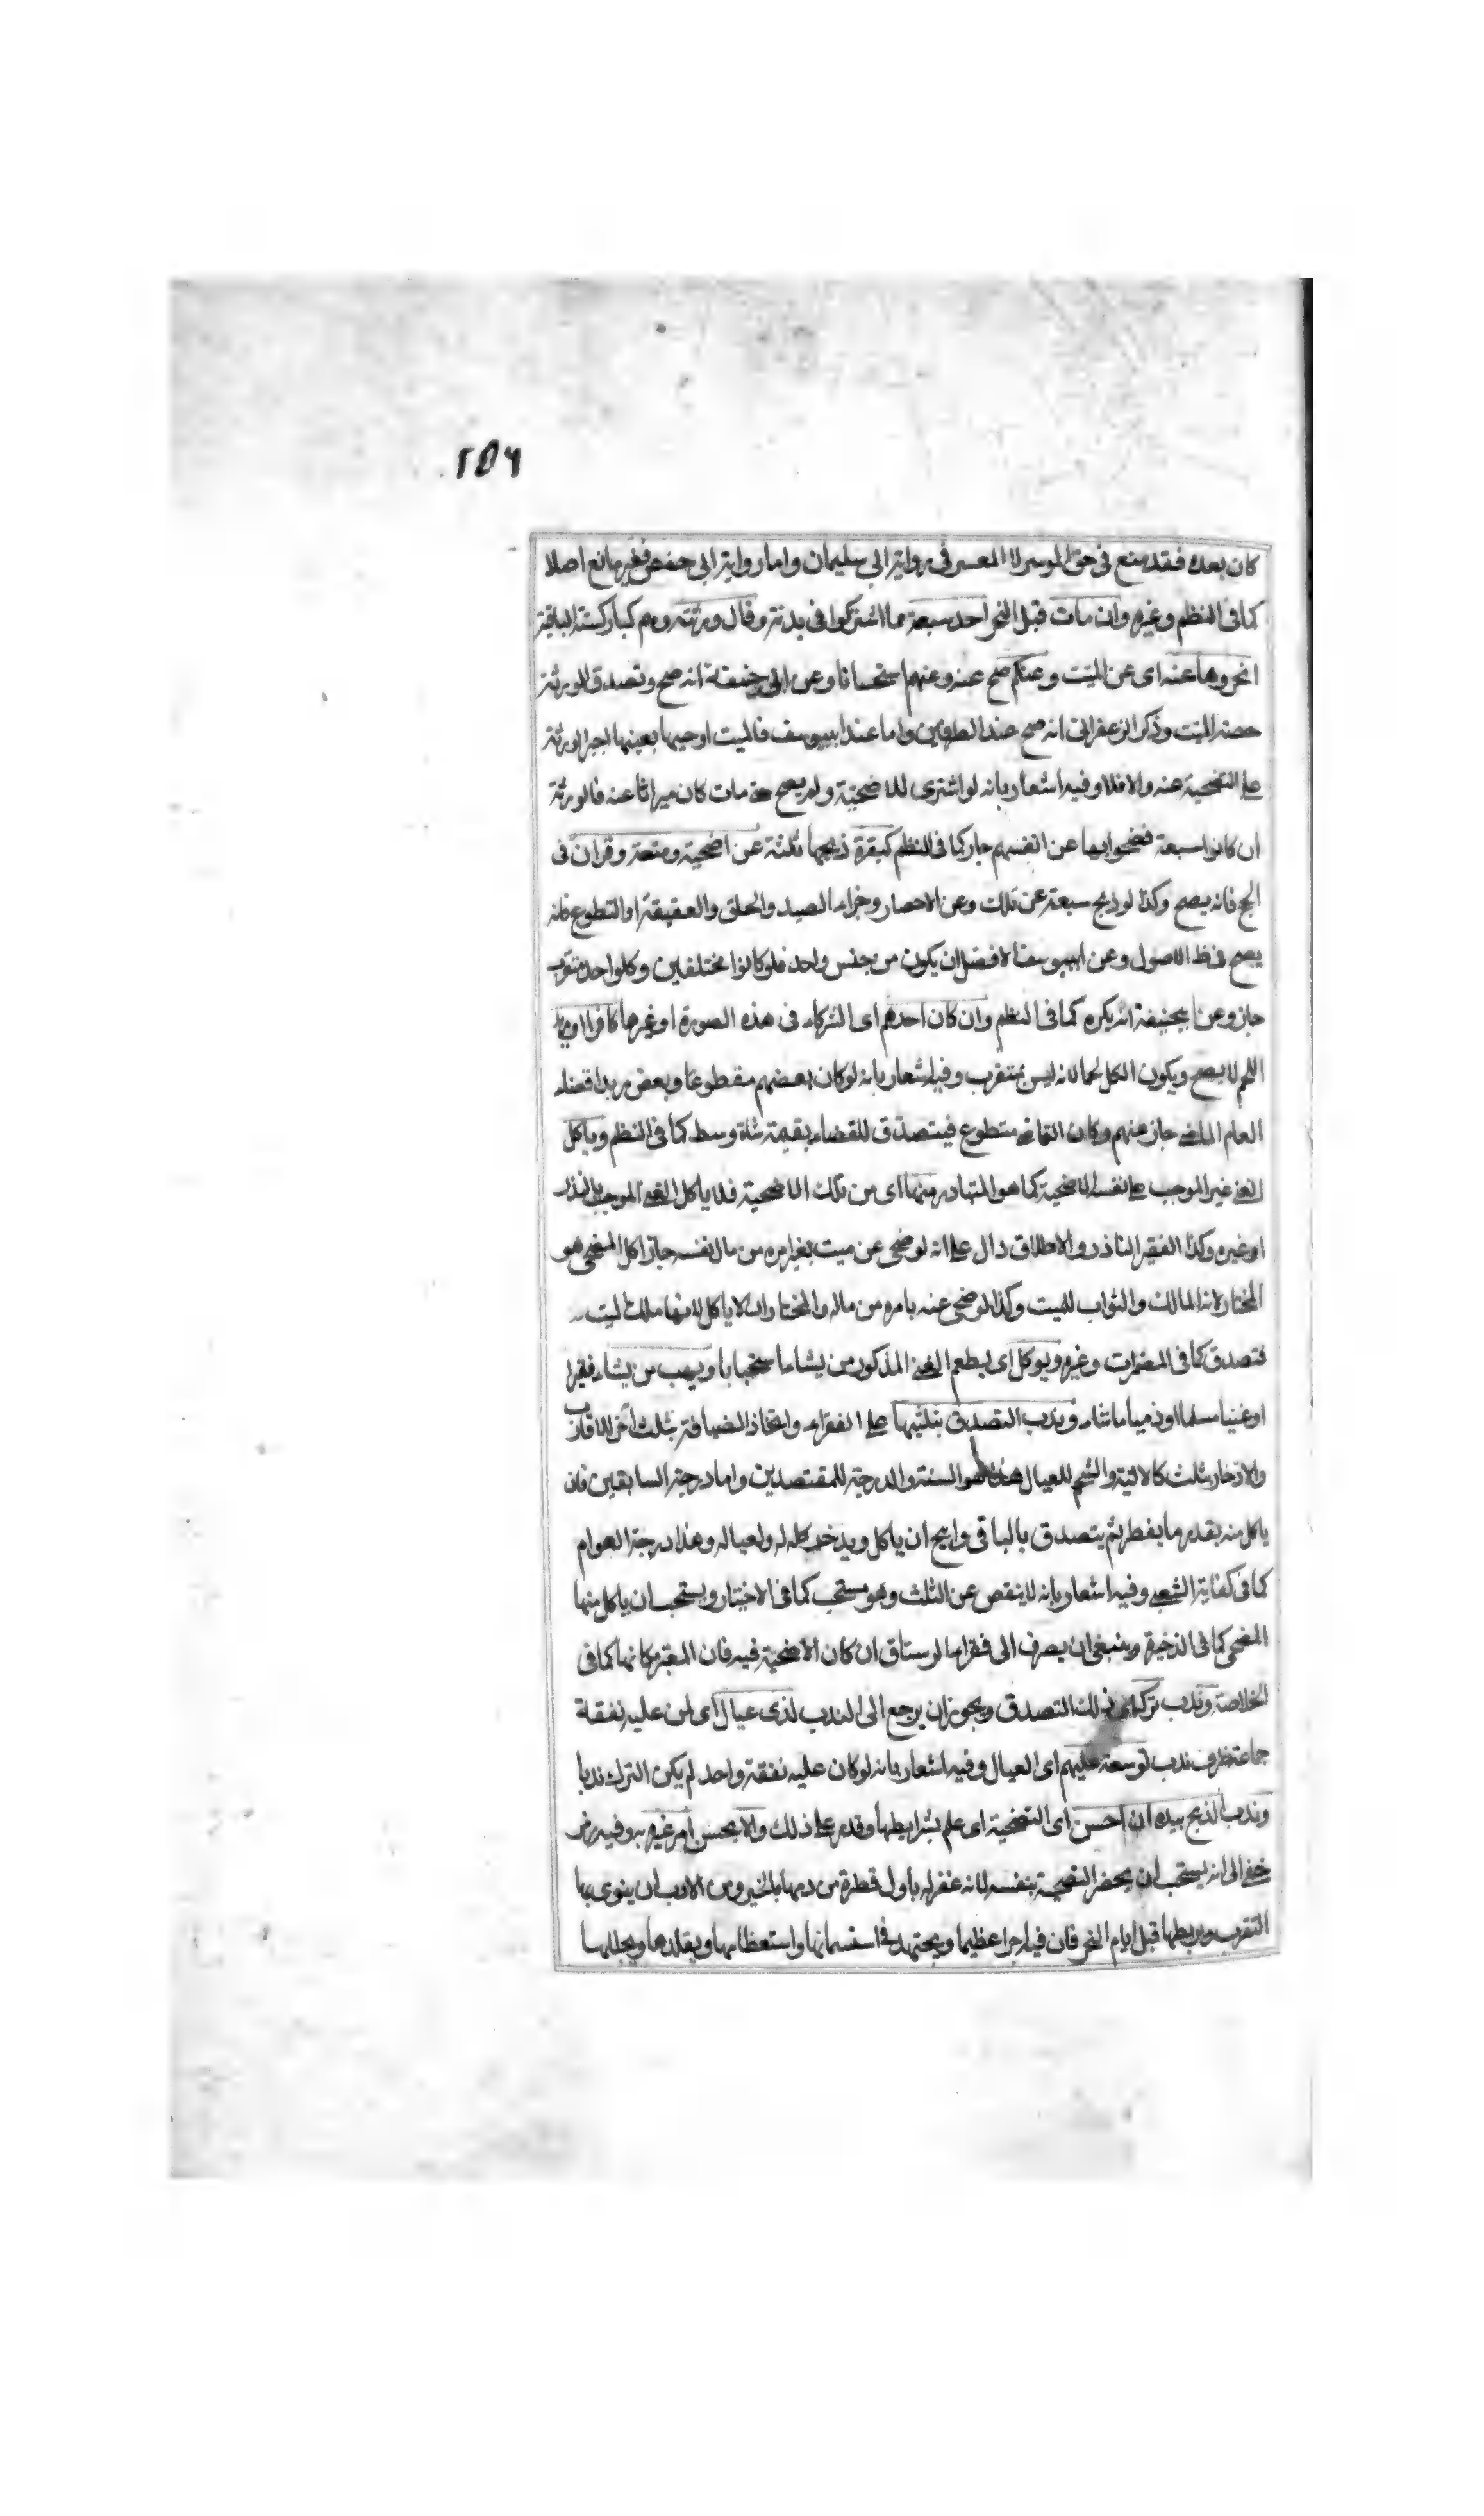 ۲۵۶
كان بعده فقد منع فى حق الموسر لا المعسر فى رواية ابى سليمان واما رواية ابى حفص فغير مانع اصلا
كما فى النظم وغيره وان مات قبل النحر احد سبعة مما اشتركوا فى بدنة وقال ورثته وهم كبار كستة الباقية
انحروها عنه اى عن الميت وعنكم صح عنه وعنهم استحسانا وعن ابى حنيفة انه صح وتصدق الورثة
حصة الميت وذكر الزعفرانى انه صح عند الطرفين واما عند ابييوسف فالميت اوجبها بعينها اجبر الورثة
على التضحية عنه والا فلا وفيه اشعار بانه لو اشترى للاضحية ولم يضح حتى مات كان ميراثا عنه فالورثة
ان كانوا سبعة فضحوا بها عن انفسهم جاز كما فى النظم كبقرة ذبحها ثلثة عن اضحية ومتعة وقران فى
الحج فانه يصح وكذا لو ذبح سبعة عن تلك وعن الاحصار وجزاء الصيد والحلق والعقيقة او التطوع فانه
يصح فى ظ الاصول وعن ابييوسف الافضل ان يكون من جنس واحد فلو كانوا مختلفين وكل واحد متقرب
جاز وعن ابيحنيفة انه يكره كما فى النظم وان كان احدهم اى الشركاء فى هذه الصورة او غيرها كافرا او مريد
اللحم لا يصح ويكون الكل لحما لانه ليس بمتقرب وفيه اشعار بانه لو كان بعضهم متطوعا وبعض مريدا قضاء
العام الماضى جاز عنهم وكان القاضى متطوع فيتصدق للقضاء بقيمة شاة وسط كما فى النظم وياكل
الغنى غير الموجب على نفسه الاضحية كما هو المتبادر منها اى من تلك الاضحية فلا ياكل الغنى الموجب بالنذر
او غيره وكذا الفقير الناذر والاطلاق دال على انه لو ضحى عن ميت بغير امره من مال نفسه جاز اكل المضحى هو
المختار لانه المالك والثواب للميت وكذا لو ضحى عنه بامره من ماله والمختار ان لا ياكل لانها ملك الميت
فتصدق كما فى المضمرات وغيره ويوكل اى يطعم الغنى المذكور من يشاء استحبابا ويهب من يشاء فقيرا
او غنيا مسلما او ذميا ما شاء وندب التصدق بثلثها على الفقراء واتخاذ الضيافة بثلث آخر للاقارب
والادخار بثلث كالالية والشحم للعيال هذا هو السنة والدرجة للمقتصدين واما درجة السابقين فان
ياكل منه بقدر ما يفطر ثم يتصدق بالباقى وابيح ان ياكل ويدخر كله له ولعياله وهذا درجة العوام
كما فى كفاية الشعبى وفيه اشعار بانه لا ينقص عن الثلث وهو مستحب كما فى الاختيار ويستحب ان ياكل منها
المضحى كما فى الذخيرة وينبغى ان يصرف الى فقراء الرستاق ان كان الاضحية فيه فان المعتبر مكانها كما فى
الخلاصة وندب تركه اى ذلك التصدق ويجوز ان يرجع الى الندب لذى عيال اى لمن عليه نفقة
جماعة ظرف ندب توسعة عليهم اى العيال وفيه اشعار بانه لو كان عليه نفقة واحد لم يكن الترك ندبا
وندب الذبح بيده ان احسن اى التضحية اى علم بشرايطها وقدر على ذلك والا يحسن امر غيره به وفيه رمز
خفى الى انه يستحب ان يحضر التضحية بنفسه لانه غفر له باول قطرة من دمها بالخير ومن الادب ان ينوى بها
التقرب ويربطها قبل ايام النحر فان فيه اجرا عظيما ويجتهد فى استسمانها واستعظامها ويقلدها ويجللها